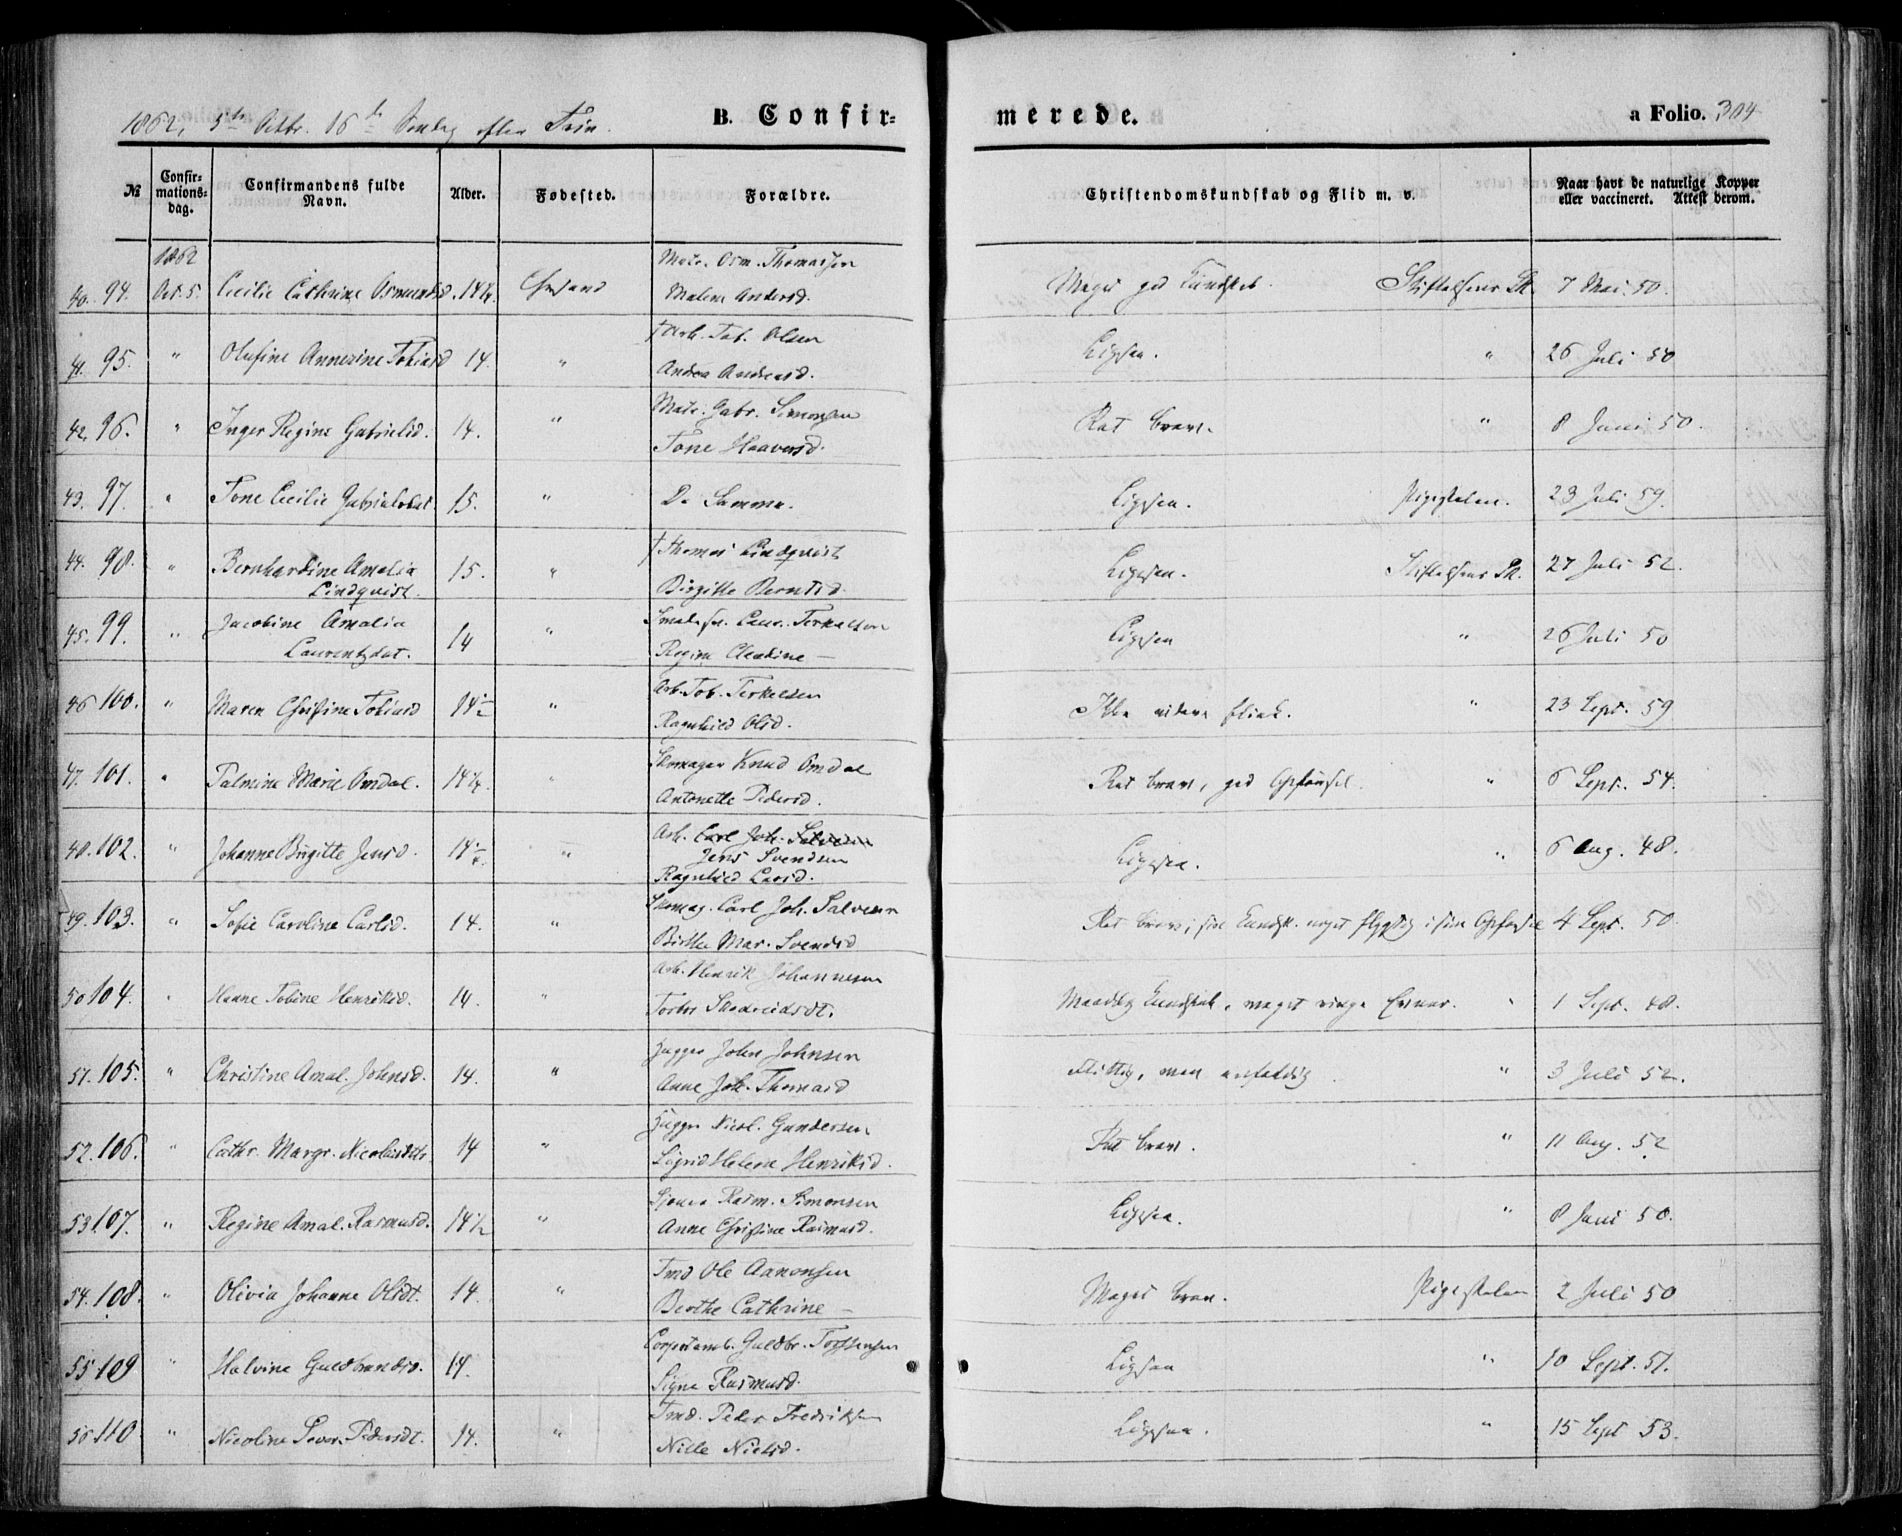 1862, 5te Octbr. 16de Søndag efter Trin.
B. Confir-
merede.
a Folio. 304
№
Confir-
mations-
dag.
Confirmandens fulde
Navn.
Alder.
Fødested.
Forældre.
Christendomskundskab og Flid m. v.
Naar havt de naturlige Kopper
eller vaccineret. Attest derom.
1862
40. 94. Oct. 5. Cecilie Cathrine Osmundsd. 14¼. Chrsand Matr. Osm. Thomassen
Malene Andersd. Meget god Kundskab. Stiftelsens Sk. 7 Mai. 50.
41. 95. " Olufine Annezine Tobiasd 14. " † Arb. Tob. Olsen
Andrea Andreasd. Ligesaa. " 26 Juli 50
42. 96. " Inger Regine Gabrielsd. 14. " Matr. Gabr. Simonsen
Tone Haaversd. Ret brav. " 8 Juni 50.
43. 97. " Tone Cecilie Gabrielsdat 15. " De Samme. Ligesaa. Pigeskolen. 23 Juli 59.
44. 98. " Bernhardine Amalia
Lindqvist. 15. " † Thomas Lindqvist
Birgitte Berntsd. Ligesaa. Stiftelsens Sk. 27 Juli 52.
45. 99. " Jacobine Amalia
Laurentzdat. 14 " Laur. Terkelsen
Regine Claudine — Ligesaa " 26 Juli 50
46 100. " Maren Christine Tobiasd 14½ " Arb. Tob. Terkelsen
Ragnhild Olsd. Ikke videre flink. " 23 Sept. 59
47. 101. " Talmine Marie Omdal. 14¼. " Skomager Knud Omdal
Antonette Pedersd. Ret brav, god Opførsel. " 6 Sept. 54.
48. 102. " Johanne Birgitte Jensd. 14¼. " Arb. Carl Joh. Salvesen
Jens Svendsen
Ragnhild Larsd. Ligesaa. " 6 Aug. 48.
49. 103. " Sofie Caroline Carlsd. 14. " Skomag. Carl Joh. Salvesen
Birthe Mar. Svendsd Ret brav i sin Kundsk. noget flygtig i sin Opførsel 4 Sept. 50.
50 104. " Hanne Tobine Henriksd. 14. " Arb. Henrik Johannesen
Maadelig Kundskab, meget ringe Evner. " 1 Sept. 48.
51. 105. " Christine Amal. Johnsd. 14. " John Johnsen
Anne Joh. Thomasd Flittig, men enfoldig " 3 Juli 52.
52. 106. " Cathr. Margr. Nicolaisdt. 14 " Nicol. Gundersen
Sigrid Helene Henriksd. Ret brav. " 11 Aug. 52
53. 107. " Regine Amal. Rasmusd. 14½ " Rasm. Simonsen
Anne Christine Rasmusd. Ligesaa. " 8 Juni 50.
54. 108. " Olivia Johanne Olsdt. 14. " Tmd Ole Aanonsen
Berthe Cathrine — Meget brav. Pigeskolen 2 Juli 50
55 109 " Halvine Guldbrandsd. 14. Guldbr. Torstensen
Signe Rasmusd. Ligesaa " 10 Sept. 51.
56 110 " Nicoline Sever. Pedersdt. 14. " Tmd. Peder Fredriksen
Nille Nielsd. Ligesaa. " 15 Sept 53.